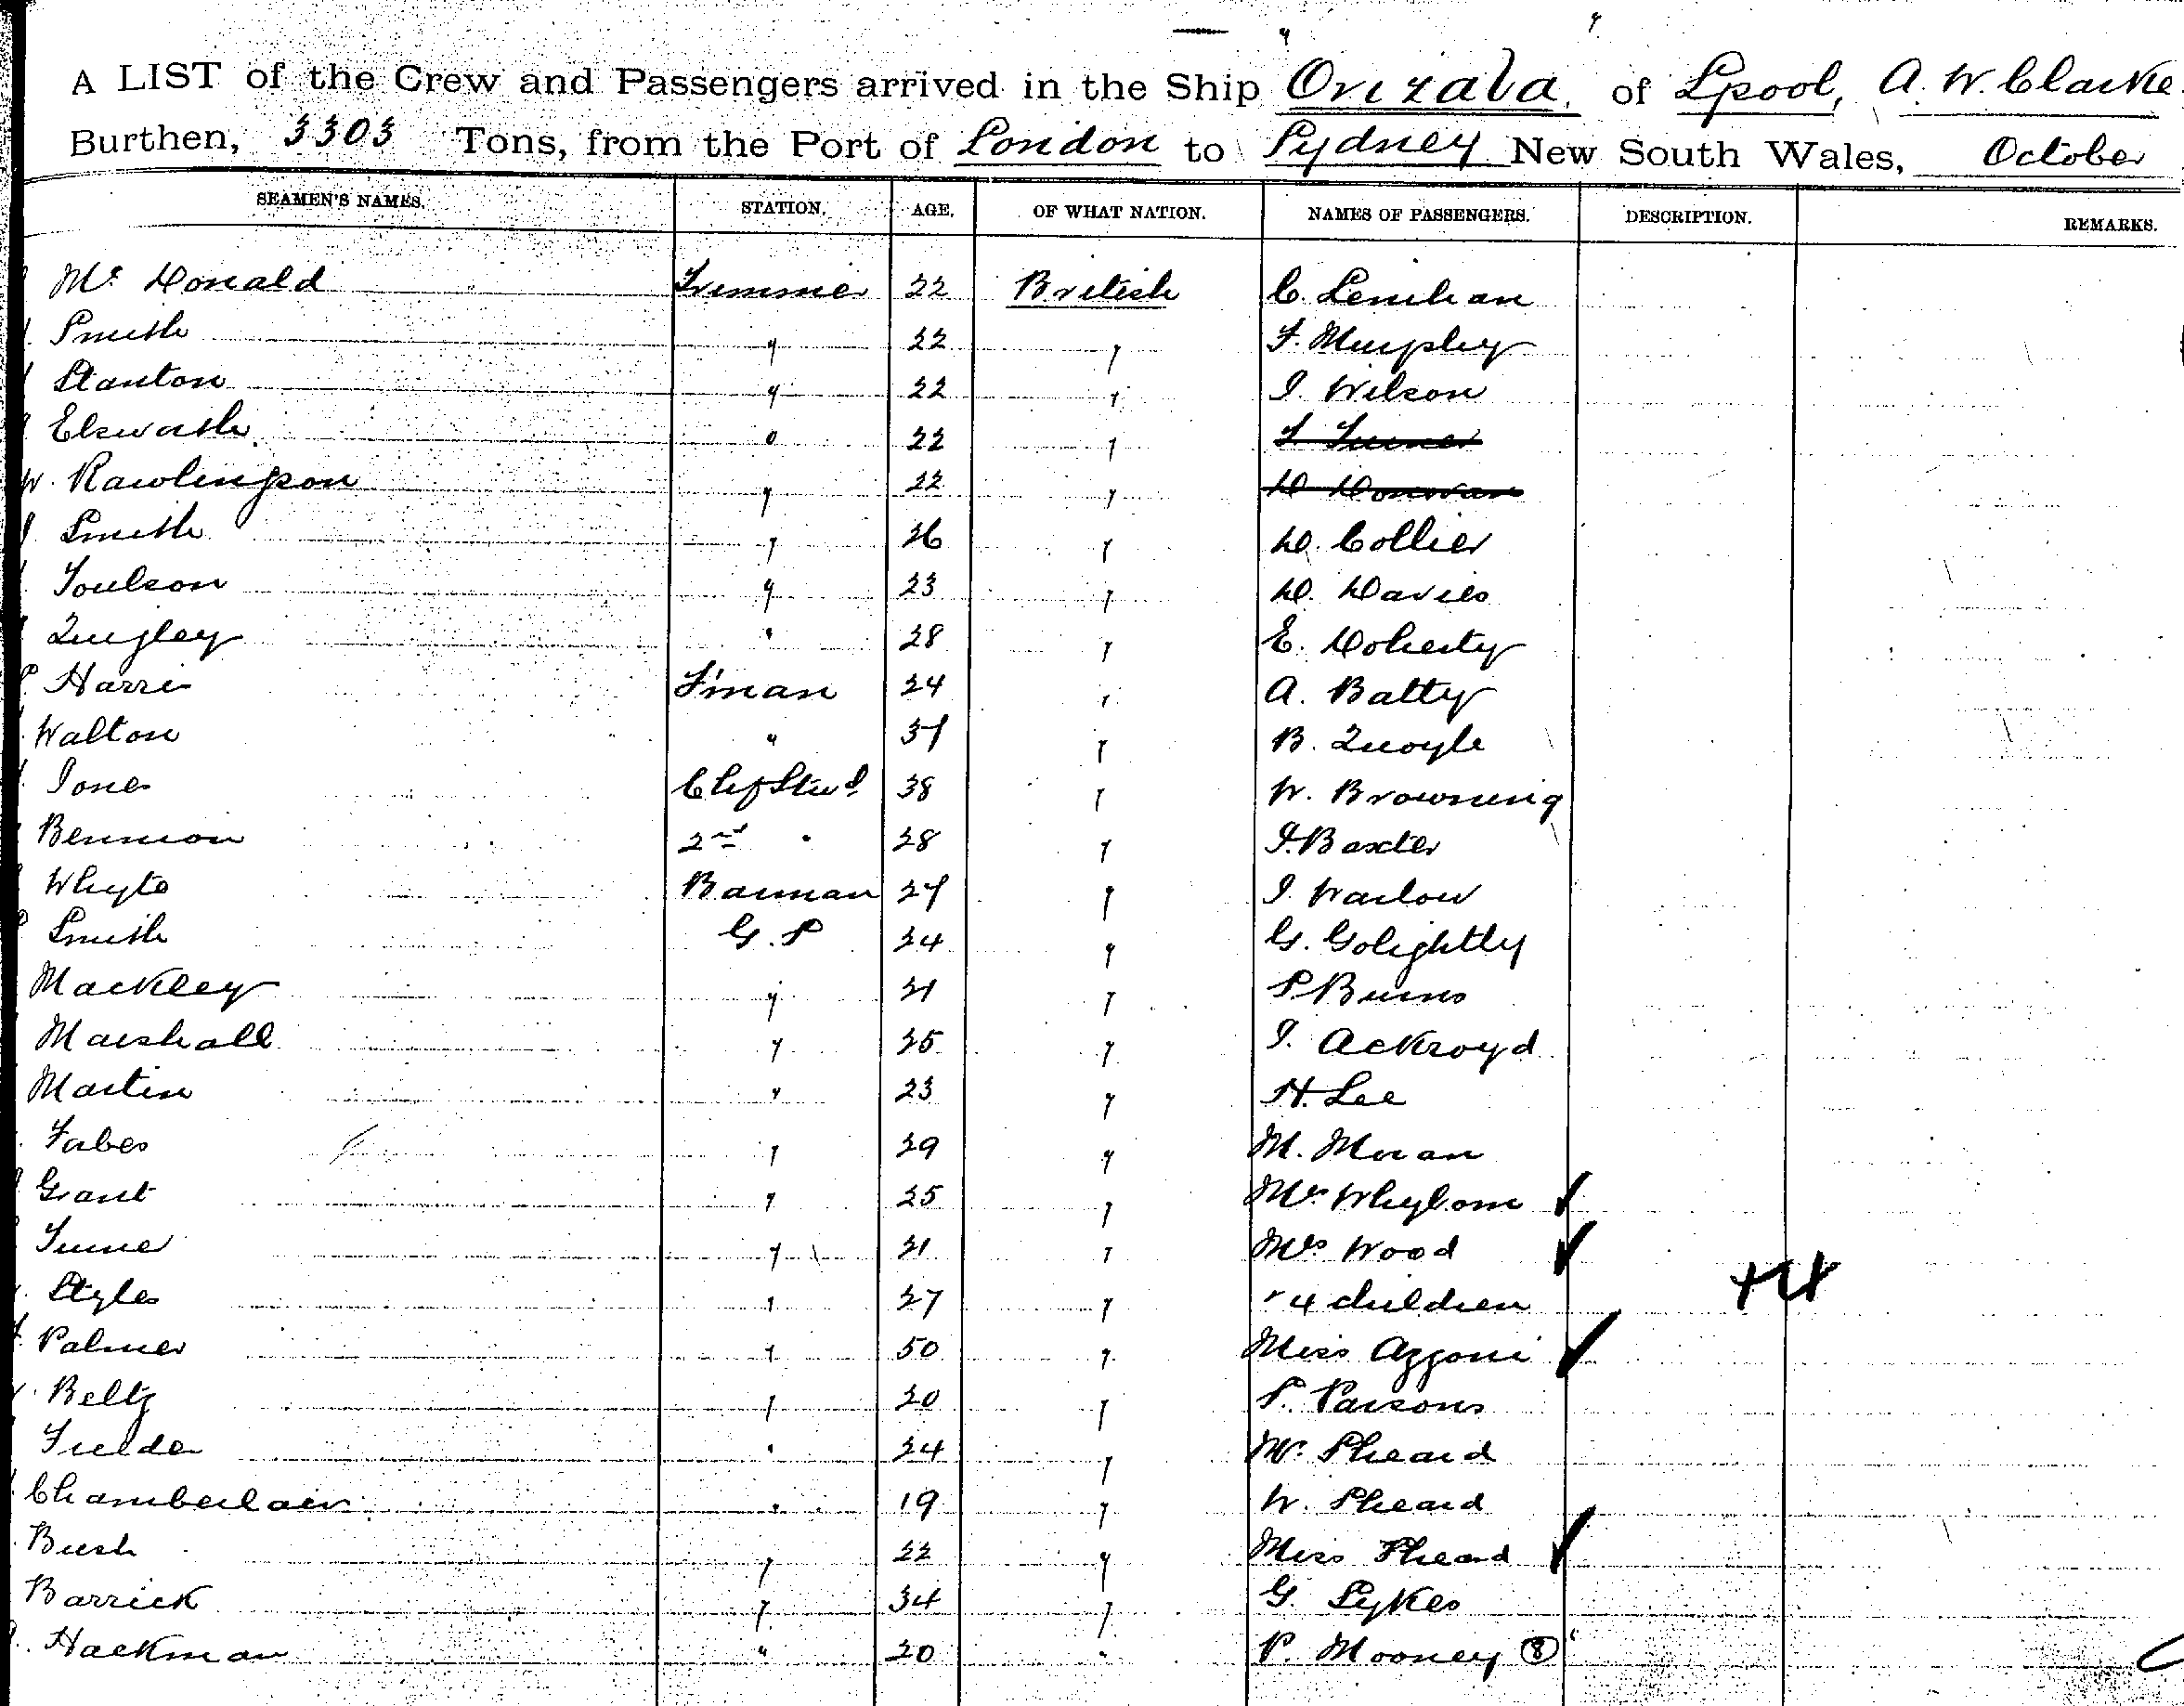 A LIST of the Crew and Passengers arrived in the Ship Orizaba, of Lpool, A. W. Clarke
Burthen, 3303 Tons, from the Port of London to Sydney New South Wales, October
SEAMEN'S NAMES. STATION. AGE. OF WHAT NATION. NAMES OF PASSENGERS. DESCRIPTION. REMARKS.
Mc Donald Trimmer 22 British C. Lenihan
Smith " 22 " F. Murphy
Stanton " 22 " J. Wilson
Elsworth " 22 " T Turner
W. Rawlingson " 22 " D Donovan
Smith " 26 " D. Collier
Toulson " 23 " D. Davies
Quigley " 28 " E. Doherty
Harris F'man 24 " A. Batty
Walton " 37 " B. Quoyle
Jones Chf Stwd 38 " W. Browning
Bennion 2nd " 28 " J. Baxter
Whyte Barman 27 " J. Warlow
Smith G.S 24 " G. Golightly
Mackley " 21 " P. Burns
Marshall " 25 " J. Ackroyd
Martin " 23 " H. Lee
Forbes " 29 " M. Moran
Grant " 25 " Mr Whylom
Turner " 21 " Mrs Wood
Styles " 27 " " 4 children
Palmer " 50 " Miss Azzoni
Beltz " 20 " S. Parsons
Fielder " 24 " M. Sheard
Chamberlain " 19 " W. Sheard
Bush " 22 " Miss Sheard
Barrick " 34 " G. Sykes
Hackman " 20 " P. Mooney 8